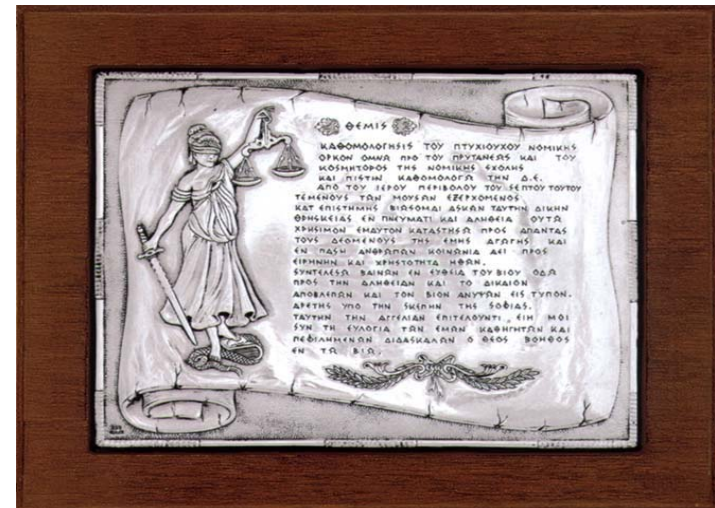 ΘΕΜΙΣ
ΚΑΘΟΜΟΛΟΓΗΣΙΣ ΤΟΥ ΠΤΥΧΙΟΥΧΟΥ ΝΟΜΙΚΗΣ
ΟΡΚΟΝ ΟΜΝΥΩ ΠΡΟ ΤΟΥ ΠΡΥΤΑΝΕΩΣ ΚΑΙ ΤΟΥ
ΚΟΣΜΗΤΟΡΟΣ ΤΗΣ ΝΟΜΙΚΗΣ ΣΧΟΛΗΣ
ΚΑΙ ΠΙΣΤΙΝ ΚΑΘΟΜΟΛΟΓΩ ΤΗΝ Δ.Ε.
ΑΠΟ ΤΟΥ ΙΕΡΟΥ ΠΕΡΙΒΟΛΟΥ ΤΟΥ ΣΕΠΤΟΥ ΤΟΥΤΟΥ
ΤΕΜΕΝΟΥΣ ΤΩΝ ΜΟΥΣΩΝ ΕΞΕΡΧΟΜΕΝΟΣ
ΚΑΤ ΕΠΙΣΤΗΜΗΣ ΒΙΩΣΟΜΑΙ ΑΣΚΩΝ ΤΑΥΤΗΝ ΔΙΚΗΝ
ΘΡΗΣΚΕΙΑΣ ΕΝ ΠΝΕΥΜΑΤΙ ΚΑΙ ΑΛΗΘΕΙΑ ΟΥΤΩ
ΧΡΗΣΙΜΟΝ ΕΜΑΥΤΟΝ ΚΑΤΑΣΤΗΣΩ ΠΡΟΣ ΑΠΑΝΤΑΣ
ΤΟΥΣ ΔΕΟΜΕΝΟΥΣ ΤΗΣ ΕΜΗΣ ΑΓΩΓΗΣ ΚΑΙ
ΕΝ ΠΑΣΗ ΑΝΘΡΩΠΩΝ ΚΟΙΝΩΝΙΑ ΑΕΙ ΠΡΟΣ
ΕΙΡΗΝΗΝ ΚΑΙ ΧΡΗΣΤΟΤΗΤΑ ΗΘΩΝ.
ΣΥΝΤΕΛΕΣΩ ΒΑΙΝΩΝ ΕΝ ΕΥΘΕΙΑ ΤΟΥ ΒΙΟΥ ΟΔΩ
ΠΡΟΣ ΤΗΝ ΑΛΗΘΕΙΑΝ ΚΑΙ ΤΟ ΔΙΚΑΙΟΝ
ΑΠΟΒΛΕΠΩΝ ΚΑΙ ΤΟΝ ΒΙΟΝ ΑΝΥΨΩΝ ΕΙΣ ΤΥΠΟΝ.
ΑΡΕΤΗΣ ΥΠΟ ΤΗΝ ΣΚΕΠΗΝ ΤΗΣ ΣΟΦΙΑΣ.
ΤΑΥΤΗΝ ΤΗΝ ΑΓΓΕΛΙΑΝ ΕΠΙΤΕΛΟΥΝΤΙ ΕΙΗ ΜΟΙ
ΣΥΝ ΤΗ ΕΥΛΟΓΙΑ ΤΩΝ ΕΜΩΝ ΚΑΘΗΓΗΤΩΝ ΚΑΙ
ΠΕΦΙΛΗΜΕΝΩΝ ΔΙΔΑΣΚΑΛΩΝ Ο ΘΕΟΣ ΒΟΗΘΟΣ
ΕΝ ΤΩ ΒΙΩ.